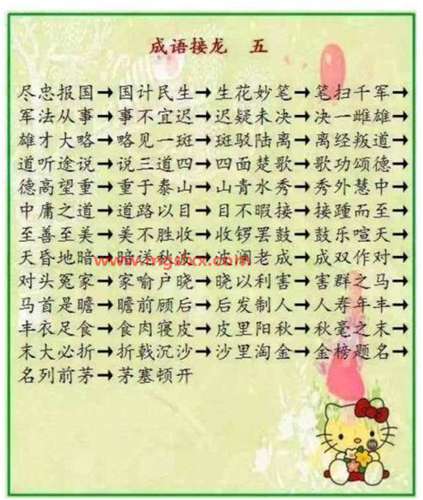 成语接龙 五
尽忠报国→国计民生→生花妙笔→笔扫千军→
军法从事→事不宜迟→迟疑未决→决一雌雄→
雄才大略→略见一斑→斑驳陆离→离经叛道→
道听途说→说三道四→四面楚歌→歌功颂德→
德高望重→重于泰山→山青水秀→秀外慧中→
中庸之道→道路以目→目不暇接→接踵而至→
至善至美→美不胜收→收锣罢鼓→鼓乐喧天→
天昏地暗→暗送秋波→老成→成双作对→
对头冤家→家喻户晓→晓以利害→害群之马→
马首是瞻→瞻前顾后→后发制人→人寿年丰→
丰衣足食→食肉寝皮→皮里阳秋→秋毫之末→
末大必折→折戟沉沙→沙里淘金→金榜题名→
名列前茅→茅塞顿开